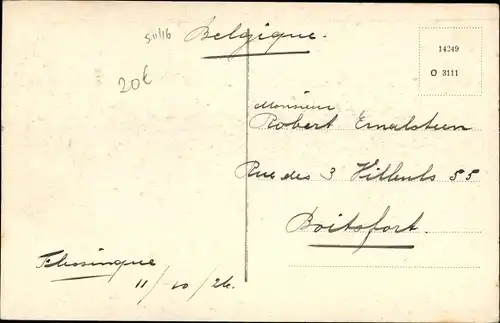 5 11/16
Belgique.
20€
14249
O 3111
Monsieur
Robert Emalsteen
Rue des 3 Tilleuls 55
Boitsfort.
Flessingue
11/10/26.